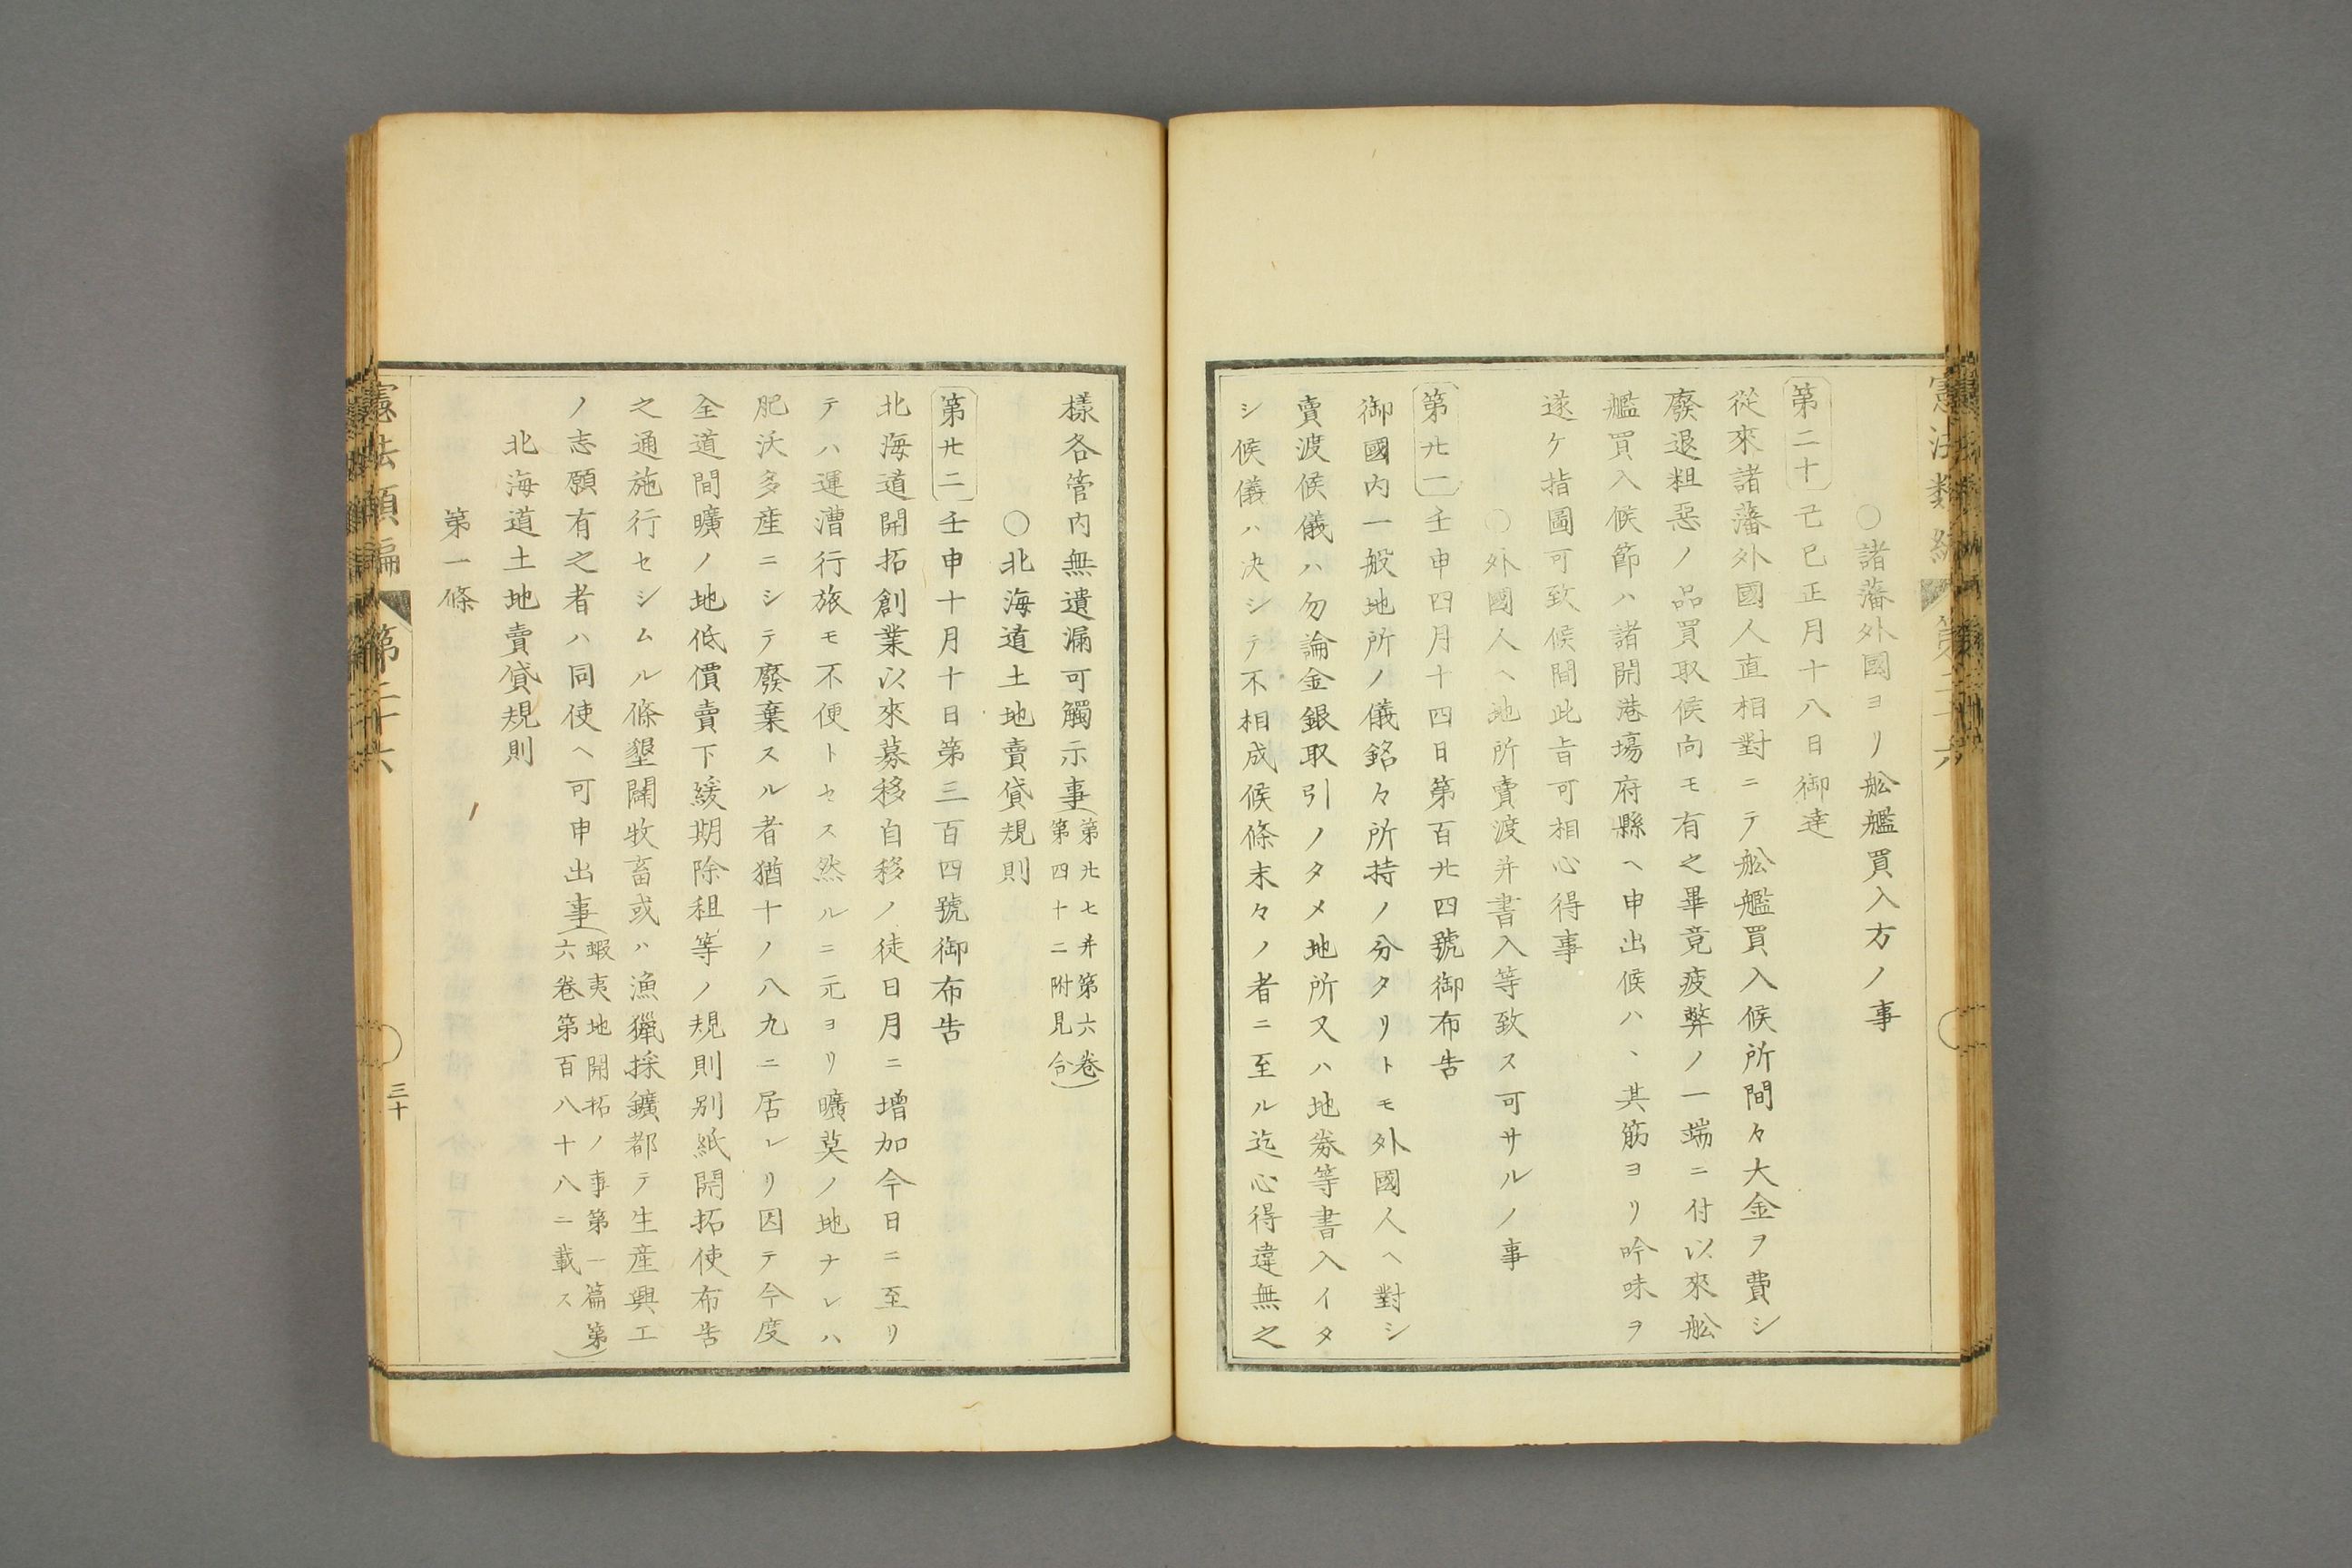 憲法類編 第二十六
○諸藩外國ヨリ舩艦買入方ノ事
第二十 己巳正月十八日御達
從來諸藩外國人直相對ニテ舩艦買入候所間々大金ヲ費シ
廢退粗惡ノ品買取候向モ有之畢竟疲弊ノ一端ニ付以來舩
艦買入候節ハ諸開港塲府縣ヘ申出候ハヽ其筋ヨリ吟味ヲ
遂ケ指圖可致候間此旨可相心得事
○外國人ヘ地所賣渡并書入等致ス可サルノ事
第廿一 壬申四月十四日第百廿四號御布告
御國内一般地所ノ儀銘々所持ノ分タリトモ外國人ヘ對シ
賣渡候儀ハ勿論金銀取引ノタメ地所又ハ地劵等書入イタ
シ候儀ハ决シテ不相成候條末々ノ者ニ至ル迄心得違無之
樣各管内無遺漏可觸示事(第廿七并第六卷
第四十二附見合)
○北海道土地賣貸規則
第廿二 壬申十月十日第三百四號御布告
北海道開拓創業以來募移自移ノ徒日月ニ增加今日ニ至リ
テハ運漕行旅モ不便トセス然ルニ元ヨリ曠莫ノ地ナレハ
肥沃多産ニシテ廢棄スル者猶十ノ八九ニ居レリ因テ今度
全道間曠ノ地低價賣下緩期除租等ノ規則别紙開拓使布告
之通施行セシムル條墾闢牧畜或ハ漁獵採鑛都テ生産興工
ノ志願有之者ハ同使ヘ可申出事(蝦夷地開拓ノ事第一篇第
六卷第百八十八ニ載ス)
北海道土地賣貸規則
第一條
憲法類編 第二十六
三十